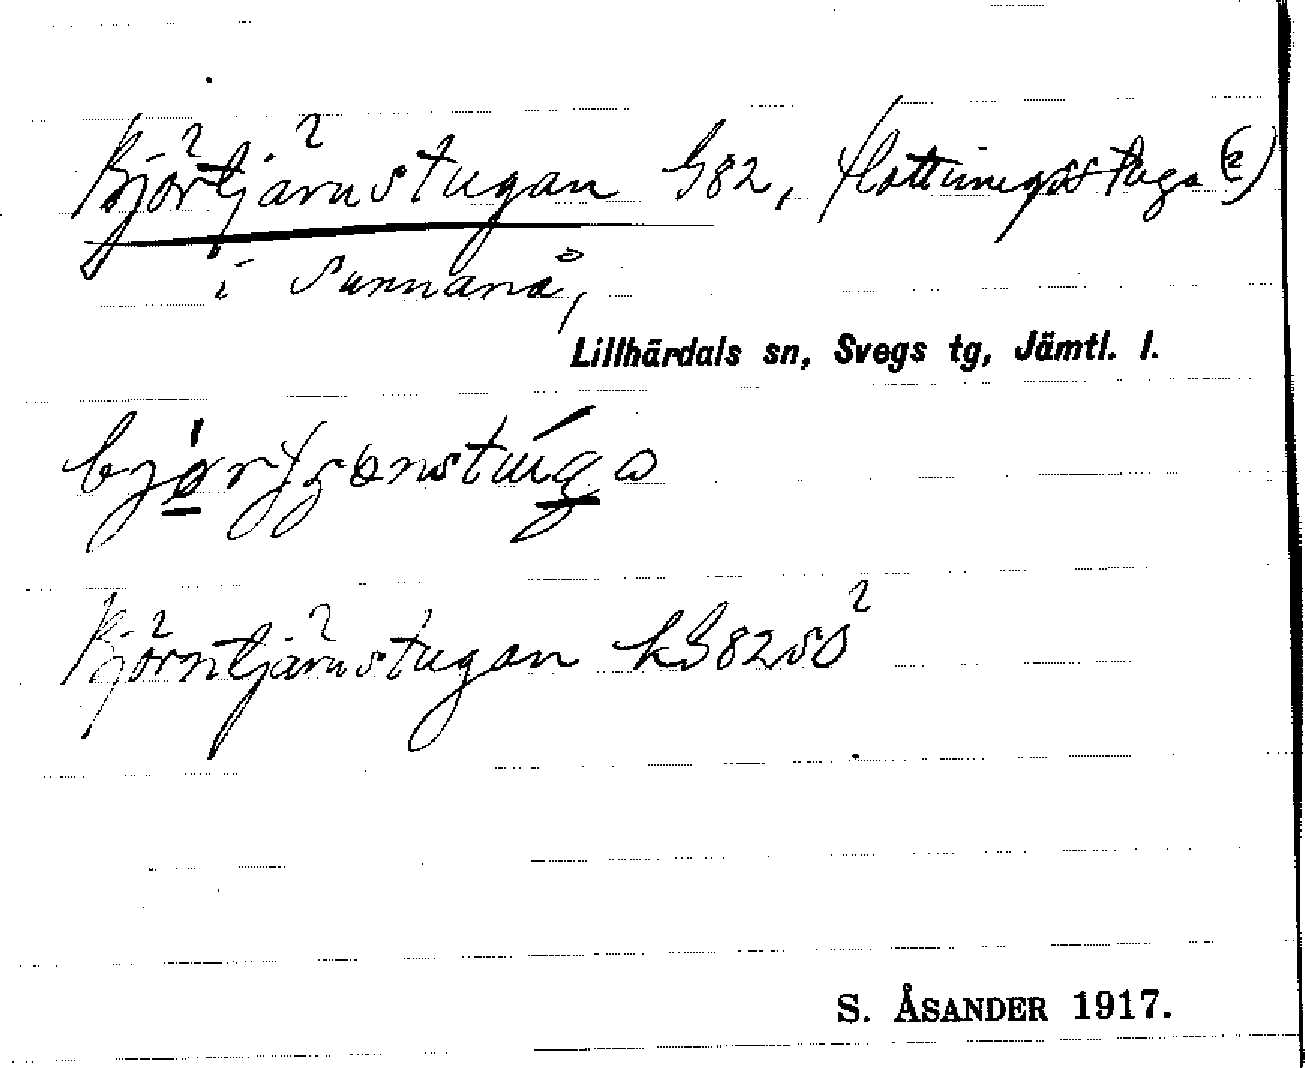 Björtjärnstugan G82, flottningsstuga (2)
i Sunnanå,
Lillhärdals sn, Svegs tg, Jämtl. l.
Björntjärnstugan kG82SO²
S. ÅSANDER 1917.